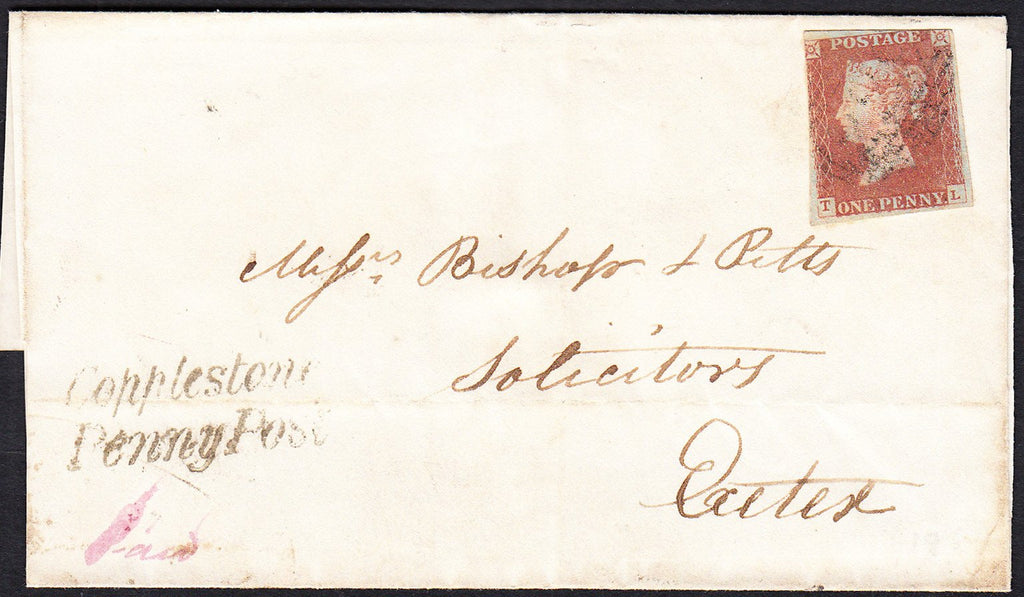 POSTAGE
T ONE PENNY. L
Messrs Bishop & Pitts
Solicitors
Exeter
Copplestone
Penny Post
Paid